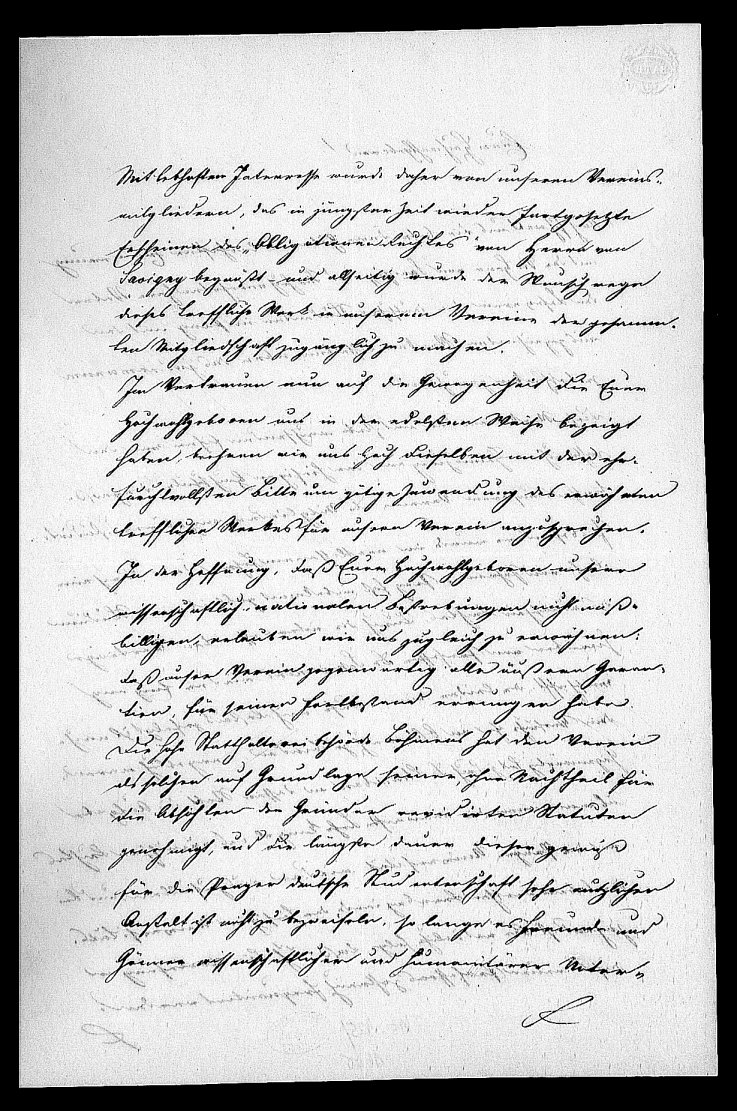 Mit lebhaftem Interesse wurde daher von unseren Vereins-
mitgliedern, das in jüngster Zeit wieder fortgesetzte
Erscheinen des „Obligationenrechtes" von Herrn von
Savigny begrüßt und allseitig wurde der Wunsch rege
dieses treffliche Werk in unserem Vereine der gesamm-
ten Mitgliedschaft zugänglich zu machen.
Im Vertrauen nun auf die Gewogenheit die Euer
Hochwohlgeboren uns in der edelsten Weise bezeigt
haben, beehren wir uns Hoch Dieselben mit der ehr-
furchtvollsten Bitte um gütige Zuwendung des erwähnten
trefflichen Werkes für unsern Verein anzusprechen.
In der Hoffnung, daß Euer Hochwohlgeboren unsere
wissenschaftlich-nationalen Bestrebungen nicht miß-
billigen, erlauben wir uns zugleich zu erwähnen:
daß unser Verein gegenwärtig alle äußern Garan-
tien, für seinen Fortbestand errungen habe
Die hohe Statthalterei Böhmens hat den Verein
als solchen auf Grundlage seiner, ohne Nachtheil für
die Absichten der Gründer revidirten Statuten
genehmigt, und die längste Dauer dieser gewiß
für die Prager deutsche Studentenschaft sehr nützlichen
Anstalt ist nicht zu bezweifeln, so lange es Freunde und
Gönner wissenschaftlicher und humanitärer Unter-